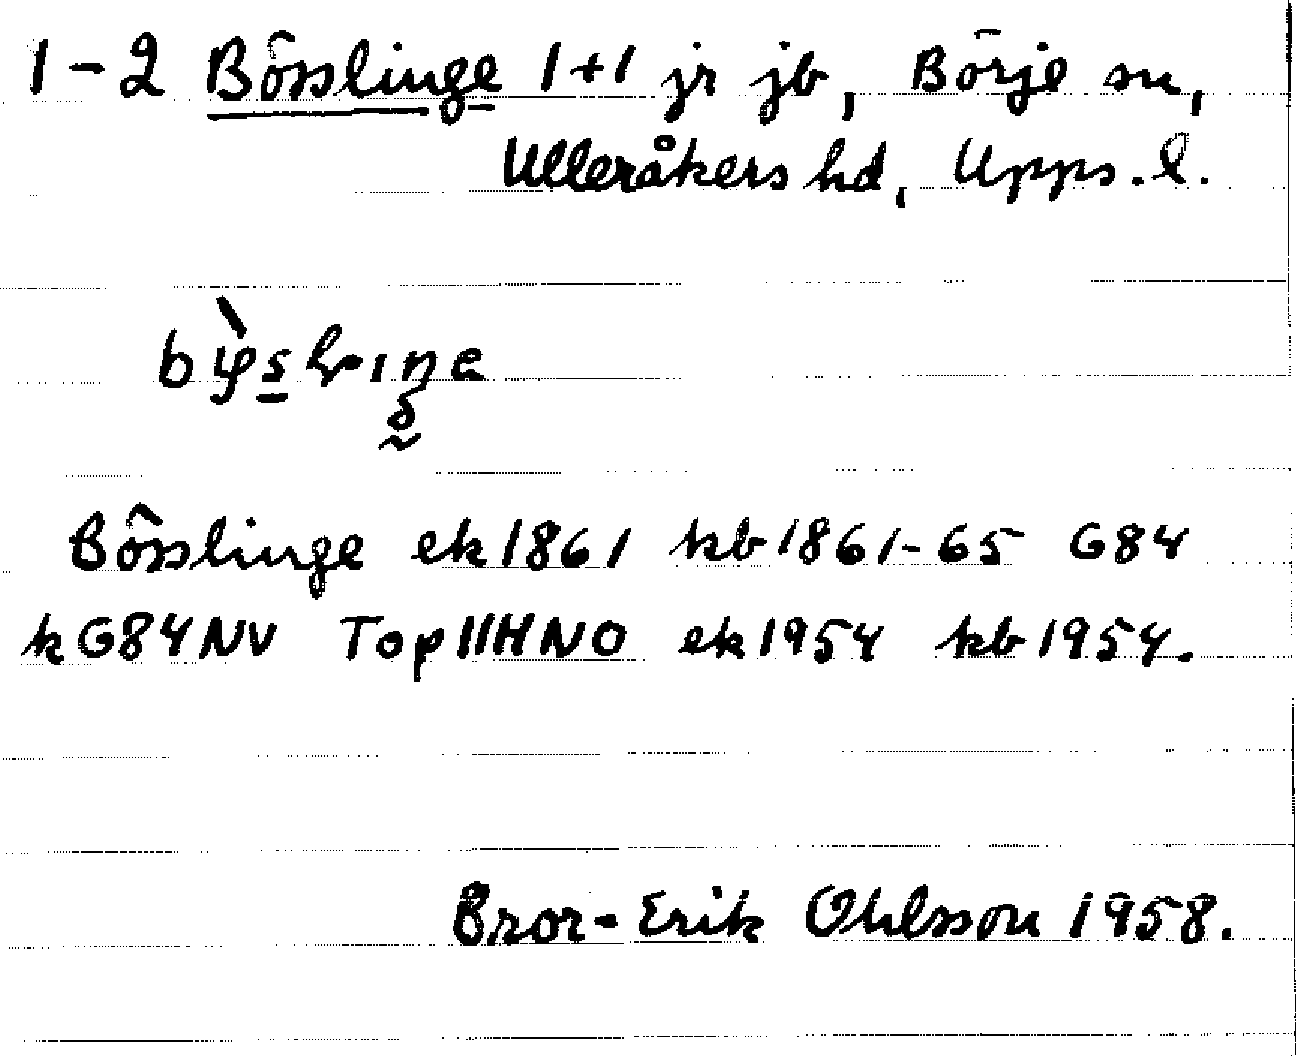 1-2 Bösslinge 1+1 jr jb, Börje sn,
Ulleråkers hd, Upps. l.
Bösslinge ek1861 kb1861-65 G84
kG84NV Top11HNO ek1954 kb1954.
Bror-Erik Ohlsson 1958.